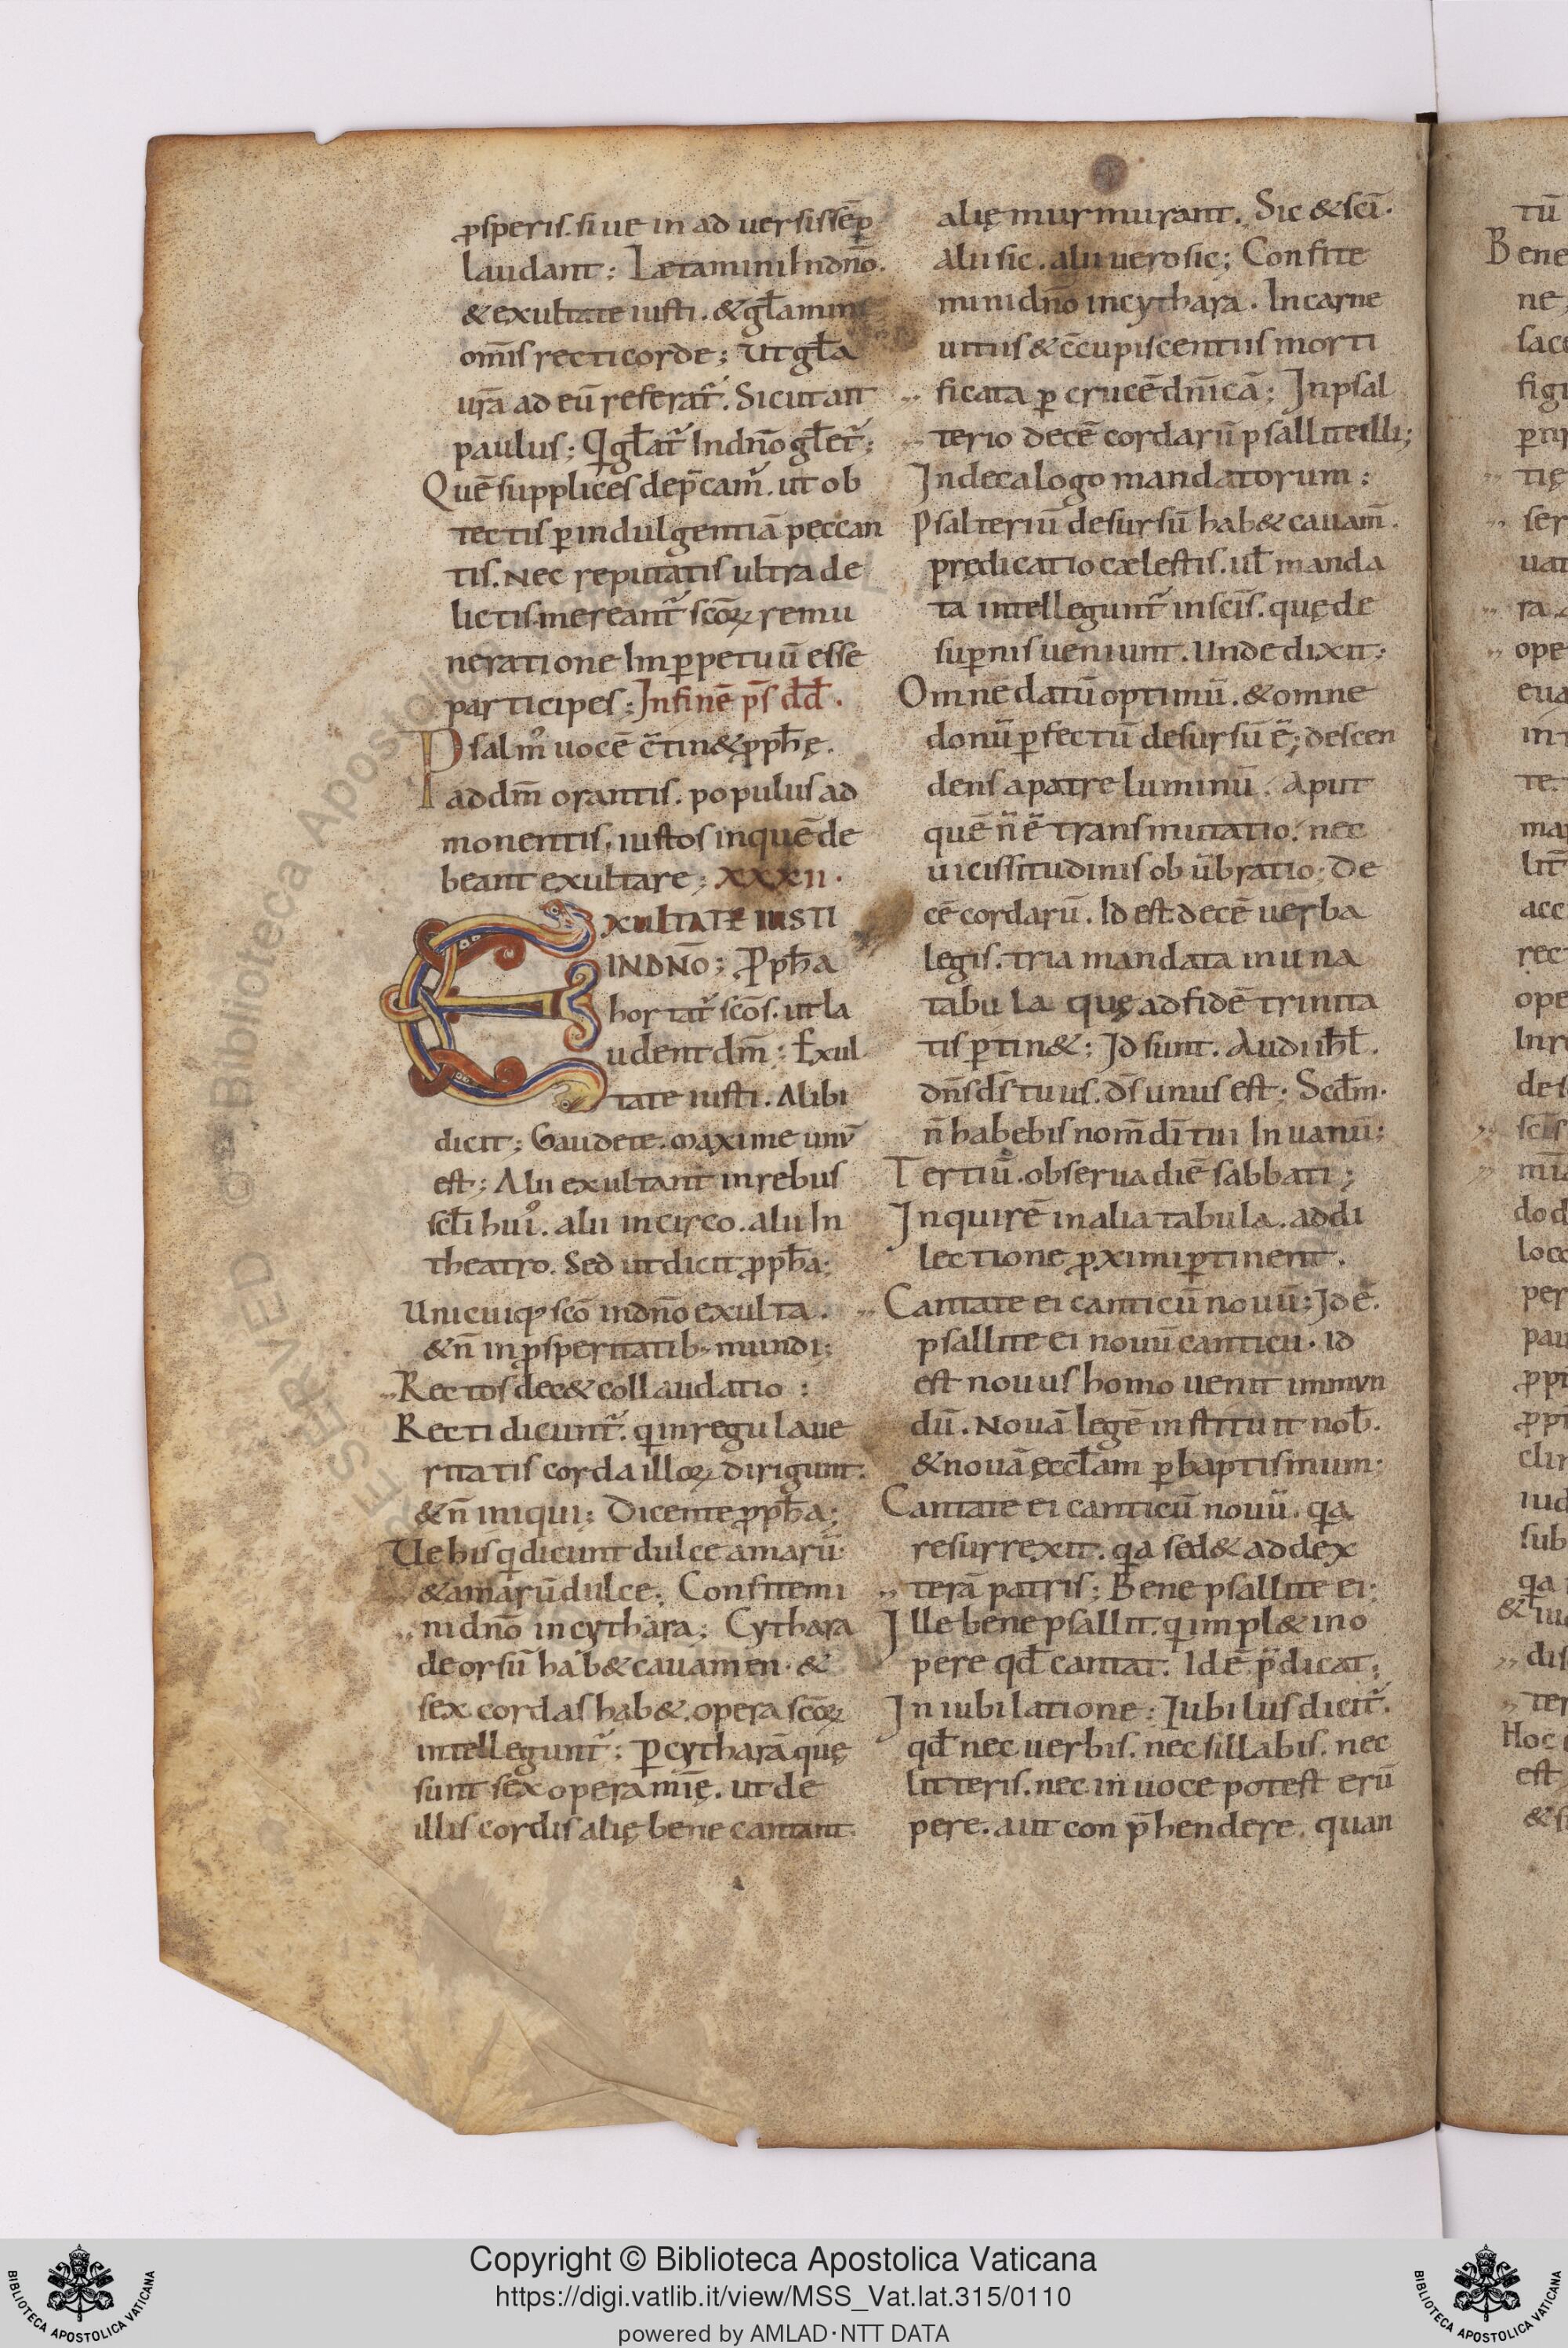 ꝓsperis. siue in aduersis sēp
laudant; Lætamini In dn̄o.
& exultate iusti. & gl̄amini
om̄s recti corde; Ut gl̄a
ur̄a ad eū referat᷑. Sicut ait
paulus; Qi gl̄at᷑ In dn̄o gl̄et᷑;
Quē supplices dep̄cam᷑. ut ob
tectis ꝑ indulgentiā peccan
tis. Nec reputatis ultra de
lictis. mereant᷑ sc̄oꝝ remu
neratione In ꝑpetuū esse
participes; In finē ps̄ dd̄.
Psalm᷒ uocē c̄tin& ꝓph̄ę.
ad dm̄ orantis. populus ad
monentis. iustos in quē de
beant exultare; XXXII.
EXULTATE IUSTI
IN DN̄O; Ꝓph̄a
hortat᷑ sc̄os. ut la
udent dm̄; Exul
tate iusti. Alibi
dicit; Gaudete. maxime unū
est; Alii exultant in rebus
scl̄i hui᷒. alii in circo. alii In
theatro. Sed ut dicit ꝓph̄a;
Unicuiqꝫ sc̄o in dn̄o exulta.
& n̄ in ꝓsperitatib; mundi;
Rectos dec& collaudatio;
Recti dicunt᷑. qi in regula ue
ritatis corda illoꝝ dirigunt.
& n̄ iniqui; Dicente ꝓph̄a;
Ue his qi dicunt dulce amarū.
& amarū dulce; Confitemi
ni dn̄o in cythara; Cythara
deorsū hab& cauamen. &
sex cordas hab&. opera sc̄oꝝ
intellegunt᷑; Ꝑ cytharā quę
sunt sex opera mīę. ut de
illis cordis alię bene cantant
alię murmurant. Sic & sc̄i.
alii sic. alii uero sic; Confite
mini dn̄o in cythara. In carne
uitiis & c̄cupiscentiis morti
ficata ꝑ crucē dn̄icā; In psal
terio decē cordarū psallite illi;
In decalogo mandatorum;
Psalteriū desursū hab& cauam̄.
prędicatio cælestis. ul̄ manda
ta intellegunt᷑ in sc̄is. quę de
suꝑnis ueniunt. Unde dixit;
Omne datū optimū. & omne
donū ꝑfectū desursū ē; descen
dens a patre luminū. Aput
quē n̄ ē transmutatio. nec
uicissitudinis obūbratio; De
cē cordarū. Id est decē uerba
legis. tria mandata in una
tabula quę ad fidē trinita
tis ꝑtin&; Id sunt. Audi ihl̄.
dn̄s ds̄ tuus. ds̄ unus est; Scdm̄.
n̄ habebis nom̄ dī tui In uanū;
Tertiū. obserua diē sabbati;
Inquirē in alia tabula. ad di
lectione ꝓximi ꝑtinent.
Cantate ei canticū nouū; Id ē.
psallite ei nouū canticū. id
est nouus homo uenit in mun
dū. Nouā legē instituit nob̄.
& nouā ęccl̄am ꝑ baptismum;
Cantate ei canticū nouū. qa
resurrexit. qa sed& ad dex
terā patris; Bene psallite ei;
Ille bene psallit. qi impl& in o
pere qd̄ cantat. Id ē p̄dicat;
In iubilatione; Iubilus dicit᷑.
qd̄ nec uerbis. nec sillabis. nec
litteris. nec in uoce potest erū
pere. aut conp̄hendere. quan
tū
Bene
ne
sace
figu
ꝑtin
tię
ser
uat
ra.
ope
eua
in
te.
ma
lit̄
acc
rec
ope
In
de
sc̄is
mīa
do d
loco
per
pau
ꝓph
clin
iud
sub
qa
&
dis
ter
Hoc
est
&
Copyright © Biblioteca Apostolica Vaticana
https://digi.vatlib.it/view/MSS_Vat.lat.315/0110
powered by AMLAD·NTT DATA
BIBLIOTECA APOSTOLICA VATICANA
BIBLIOTECA APOSTOLICA VATICANA